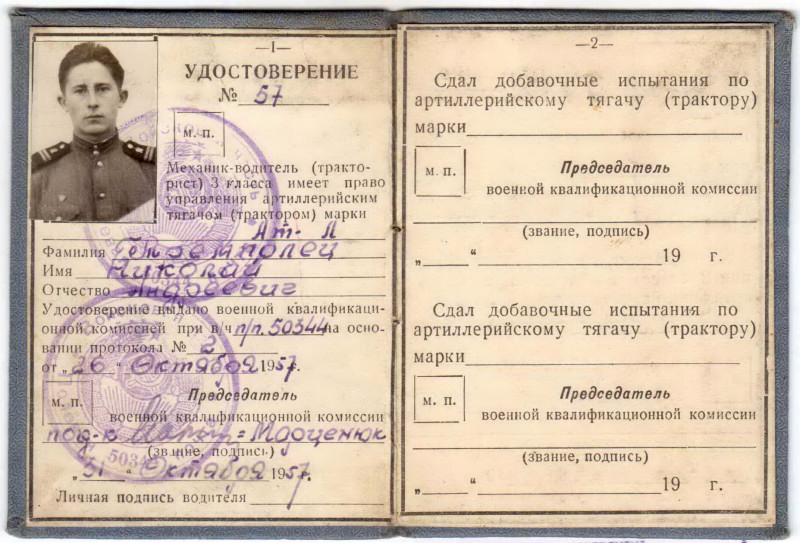 —1—
УДОСТОВЕРЕНИЕ
№ 57
М. П.
Механик-водитель (тракто-
рист) 3 класса имеет право
управления артиллерийским
тягачом (трактором) марки
Ат-Л
Фамилия
Имя Николай
Отчество Андреевич
Удостоверение выдано военной квалификаци-
онной комиссией при в/ч п/п. 50344 на осно-
вании протокола № 2
от „26“ Октября 1957.
М. П.
Председатель
военной квалификационной комиссии
под-к Марценюк
(звание, подпись)
„31“ Октября 1957.
Личная подпись водителя
—2—
Сдал добавочные испытания по
артиллерийскому тягачу (трактору)
марки
М. П.
Председатель
военной квалификационной комиссии
(звание, подпись)
„ “ 19 г.
Сдал добавочные испытания по
артиллерийскому тягачу (трактору)
марки
М. П.
Председатель
военной квалификационной комиссии
(звание, подпись)
„ “ 19 г.